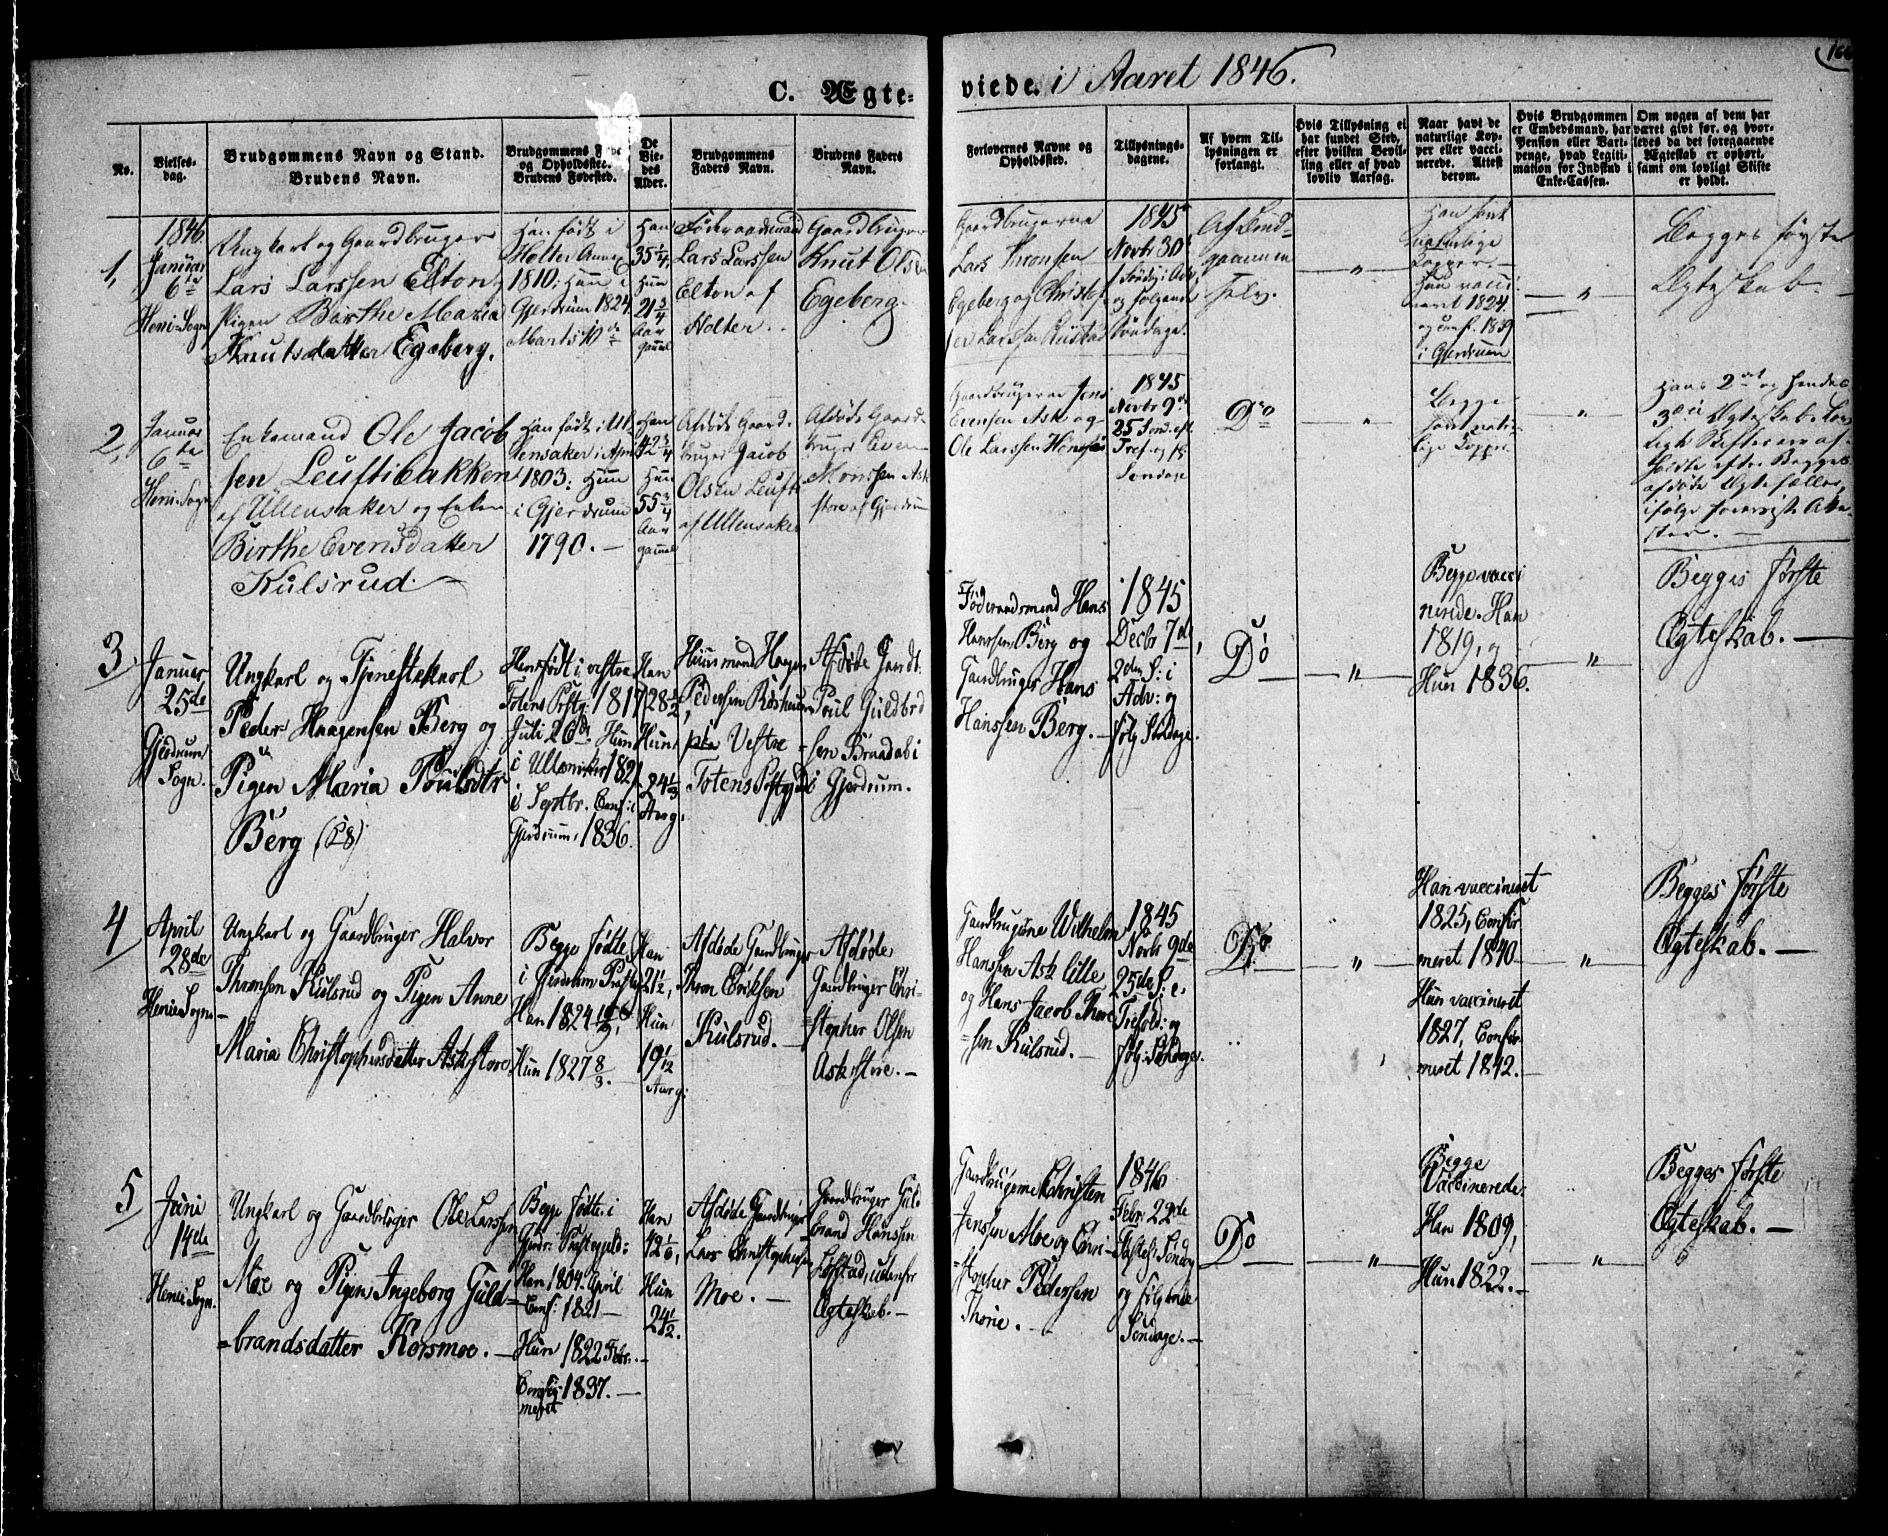 C. Ægteviede. i Aaret 1846.
No.
Vielses-
dag.
Brudgommens Navn og Stand.
Brudens Navn.
Brudgommens Føde
og Opholdssted.
Brudens Fødested.
De
Vie-
des
Alder.
Brudgommens
Faders Navn.
Brudens Faders
Navn.
Forlovernes Navne og
Opholdssted.
Tillysnings-
dagene.
Af hvem Til-
lysningen er
forlangt.
Hvis Tillysning ei
har fundet Sted,
efter hvilken Bevil-
ling eller af hvad
lovlig Aarsag.
Naar havt de
naturlige Kop-
per eller vacci-
nerede. Attest
derom.
Hvis Brudgommen
er Embedsmand, har
Pension eller Vart-
penge, hvad Legiti-
mation for Indskud i
Enke-Cassen.
Om nogen af dem har
været givt før, og hvor-
ledes da det foregaaende
Ægteskab er ophørt,
samt om lovligt Skifte
er holdt.
1,
1846.
Januar
6te
Heni-Sogn
Ungkarl og Gaardbruger
Lars Larssen Elton,
Pigen Barthe Maria
Knutsdatter Egeberg.
Han født i
Holter Annex
1810: Hun i
Gjerdrum 1824
Marts 10de
Han
35 1/4,
Hun
21 3/4
Aar
gamml
Föderaadsmand
Lars Larssen
Elton af
Holter.
Gaardbruger
Knut Olsen
Egeberg.
Gaardbrugerne
Lars Thronsen
Egeberg og Christof
fer Larssen Rustad
1845
Novbr 30te
1 Søndg i Adv.
og følgende
Søndage.
Af Brud-
gommen
selv.
Han havt
naturlige
Kopper.
Hun vacci
neret 1824
og conf. 1839
i Gjerdrum
Begges første
Ægteskab
2,
Januar
6te
Heni-Sogn
Enkemand Ole Jacob
sen Leuftibakken
af Ullensaker og Enken
Birthe Evensdatter
Kulsrud.
Han født i Ul-
lensaker i
1803: Hun
i Gjerdrum
1790.
Han
42 3/4
Hun
55 3/4
Aar
gamml
Afdøde Gaard-
bruger Jacob
Olsen Leufti
af Ullensaker
Afdøde Gaard-
bruger Even
Monssen Ask
store af Gjerdrum
Gaardbrugerne Jens
Evensen Ask og
Ole Larssen Hønsen
1845
Novbr 9de
25 Sønd. eft.
Tref. og føl.
Søndage
Do
Begge
havt natur-
lige Kopper.
Hans 2det og Hendes
3die Ægteskab. Lov
ligt Skifte er af-
holdt efter Begges
afdøde Ægtefæller,
ifølge foreviste Atte-
ster.
3
Januar
25de
Gjerdrum
Sogn.
Ungkarl og Tjenestekarl
Peder Haagensen Berg og
Pigen Maria Poulsdtr
Berg (58)
Han født i vestre
Totens Pstg. 1817
Juli 26de. Hun
i Ullensaker 1821
i Septbr. Conf: i
Gjerdrum, 1836.
Han
28 1/2
Hun
24 1/3
Aar g.
Huusmand Haagen
Pedersen
paa Vestre
Totens Pstgjld
Afdøde Gardbr.
Poul Guldbrd
sen Braadal i
i Gjerdrum.
Föderaadsmand Hans
Hanssen Berg og
Gardbruger Hans
Hanssen Berg.
1845
Decbr 7de
2den S: i
Adv: og
følg. Søndage.
Do
Begge vacci
nerede. Han
1819, og
Hun 1836.
Begges første
Ægteskab.
4
April
28de
Heni-Sogn
Ungkarl og Gaardbruger Halvor
Thronsen Kulsrud og Pigen Anne
Maria Christophersdatter Askstore,
Begge fødte
i Gjerdrum Præstg.
Han 1824 10/9,
Hun 1827 8/3.
Han
21 1/2,
Hun
19 1/12
Aar g.
Afdøde Gardbruger
Thron Eriksen
Kulsrud.
Afdøde
Gardbruger Chri-
stopher Olsen
Askstore.
Gardbrugerne Wilhelm
Hanssen Ask lille
og Hans Jacob Thore
=sen Kulsrud.
1845
Novbr 9de
25de S: e.
Trefold: og
følg: Søndage.
Do
Han vaccineret
1825, Confir
meret 1840.
Hun vaccineret
1827, Confir
meret 1842.
Begges første
Ægteskab.
5
Juni
14de
Heni-Sogn.
Ungkarl og Gaardbruger Ole Larssen
Moe og Pigen Ingeborg Guld=
=brandsdatter Korsmoe.
Begge fødte i
Gjerdr: Præstegjeld:
Han 1804. April
Conf: 1821
Hun 1822 Febr.
Confir-
meret 1837.
Han
42 1/6,
Hun
24 1/2.
Afdøde Gardbruger
Lars Christophersen
Moe.
Gardbruger Guld
brand Hanssen
Løkstad, udenfor
Ægteskab.
Gardbrugerne Christen
Jenssen Moe og Chri-
=stopher Pedersen
Thorie.
1846
Febr: 22de
Fastel: Søndag
og følgende
Søndage.
Do
Begge
Vaccinerede.
Han 1809,
Hun 1822.
Begges første
Ægteskab.